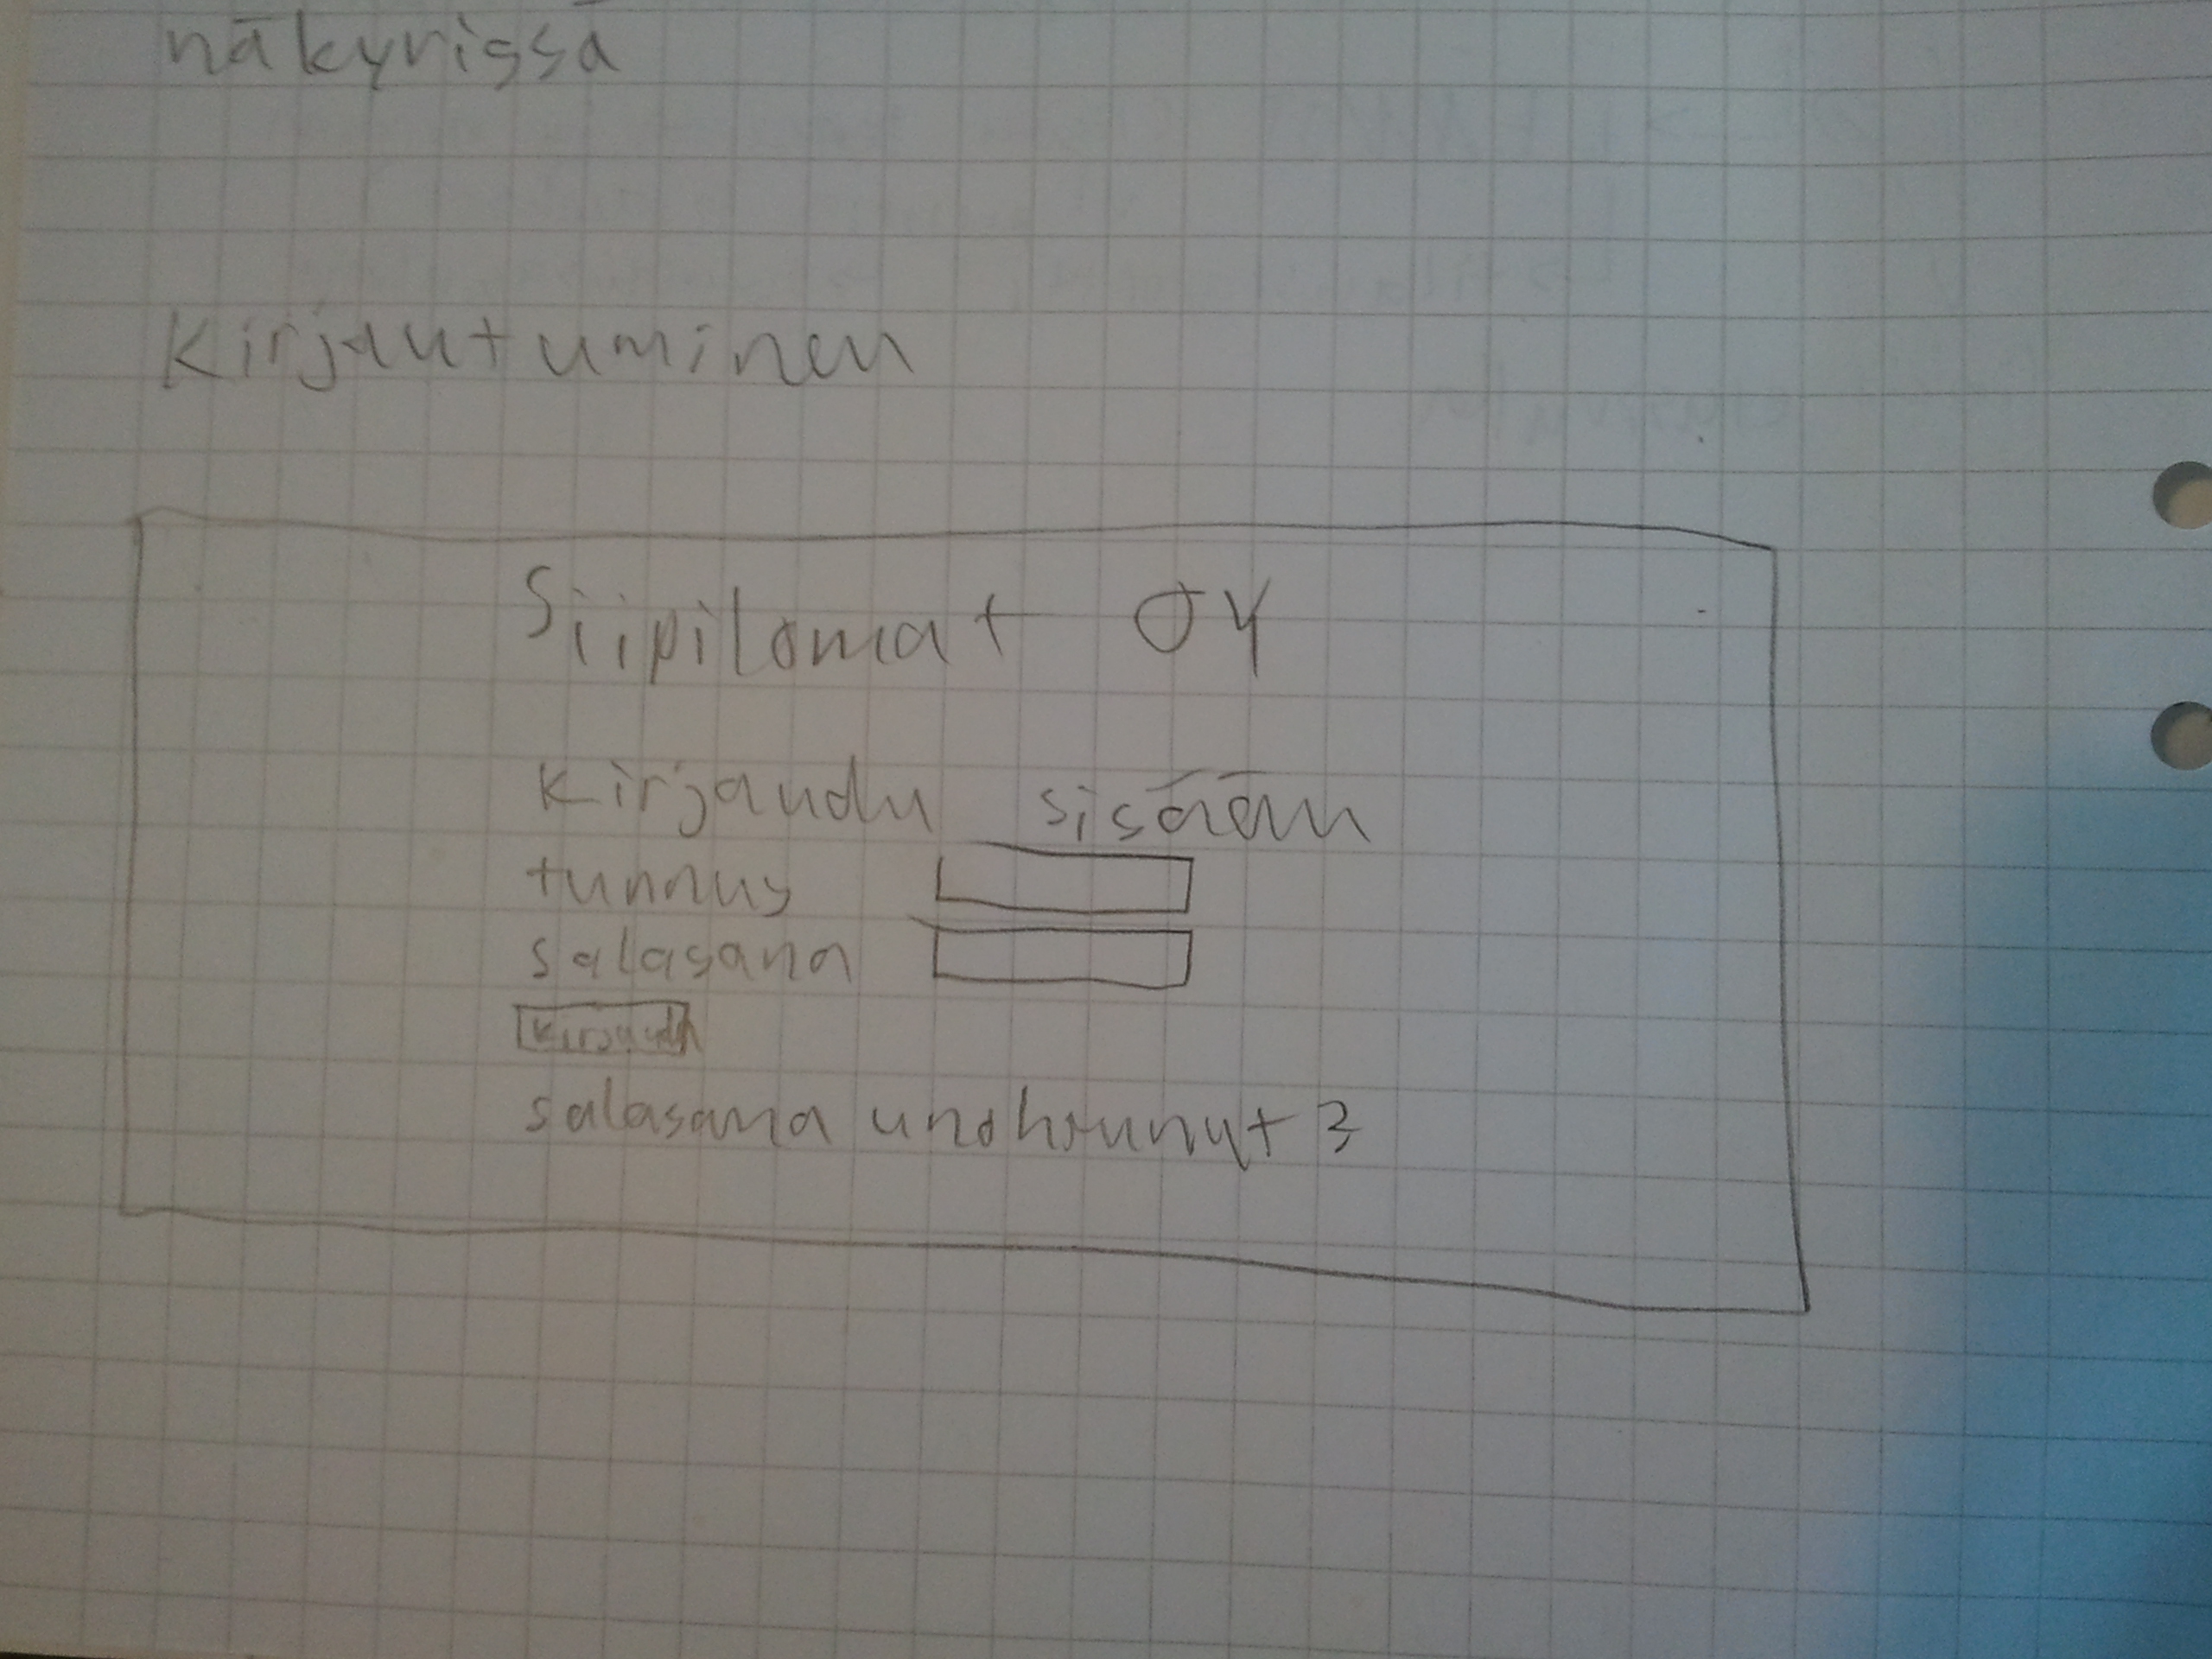 näkyvissä
Kirjautuminen
Siipilomat OY
Kirjaudu sisään
tunnus
salasana
Kirjaudu
salasana unohtunut?